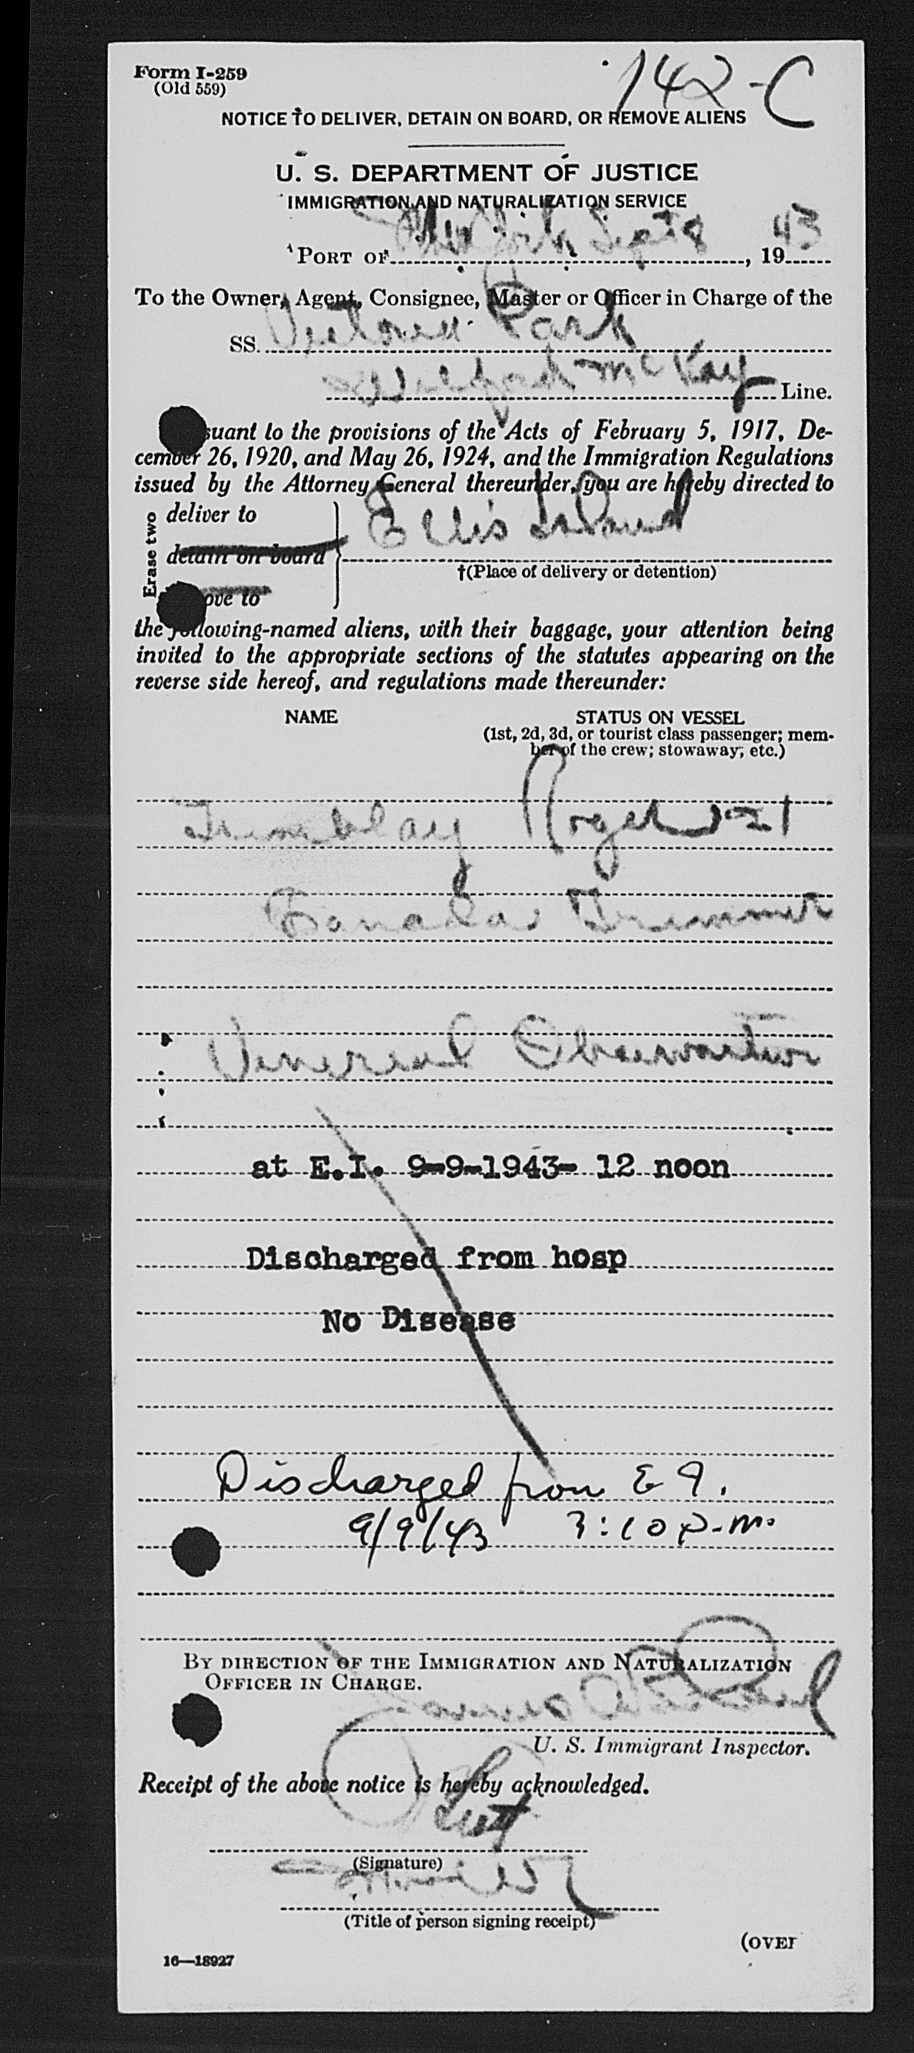 Form I-259
(Old 559)
142-C
NOTICE TO DELIVER, DETAIN ON BOARD, OR REMOVE ALIENS
U. S. DEPARTMENT OF JUSTICE
IMMIGRATION AND NATURALIZATION SERVICE
PORT OF New York Sept 8, 1943
To the Owner, Agent, Consignee, Master or Officer in Charge of the
SS. Victoria Park
McKay Line.
suant to the provisions of the Acts of February 5, 1917, De-
cember 26, 1920, and May 26, 1924, and the Immigration Regulations
issued by the Attorney General thereunder, you are hereby directed to
Erase two
deliver to
detain on board
ove to
Ellis Island
†(Place of delivery or detention)
the following-named aliens, with their baggage, your attention being
invited to the appropriate sections of the statutes appearing on the
reverse side hereof, and regulations made thereunder:
NAME
STATUS ON VESSEL
(1st, 2d, 3d, or tourist class passenger; mem-
ber of the crew; stowaway; etc.)
Tremblay Roger 1-21
Canada Trimmer
Venereal Observation
at E.I. 9-9-1943- 12 noon
Discharged from hosp
No Disease
Discharged from E I.
9/9/43 3:10 P.M.
BY DIRECTION OF THE IMMIGRATION AND NATURALIZATION
OFFICER IN CHARGE.
James
U. S. Immigrant Inspector.
Receipt of the above notice is hereby acknowledged.
(Signature)
(Title of person signing receipt)
(OVER
16—18927